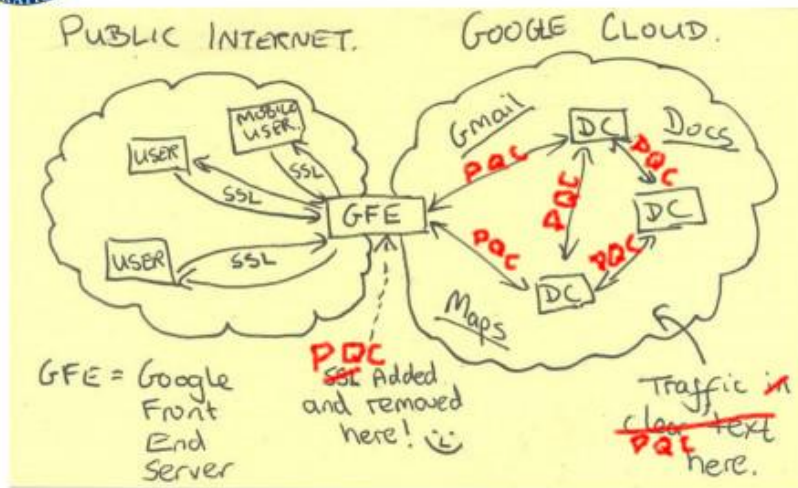 PUBLIC INTERNET.
GOOGLE CLOUD.
MOBILE
USER.
USER
SSL
SSL
USER
SSL
GFE
Gmail
DC
Docs
PQC
PQC
PQC
DC
PQC
PQC
DC
Maps
GFE = Google
Front
End
Server
PQC
SSL Added
and removed
here!
Traffic in
clear text
PQC
here.